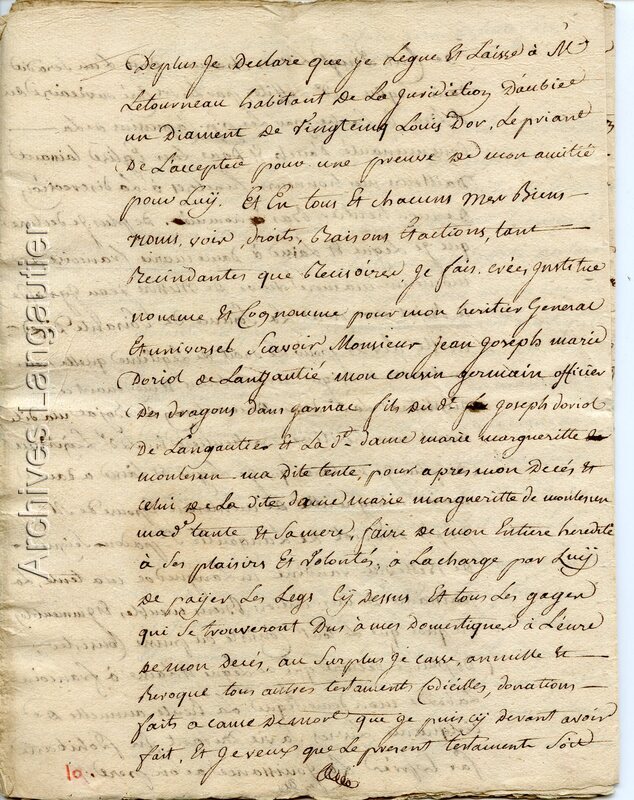 Deplus Je Declare que je Legue Et Laisse à Mr
Letourneau habitant de La Juridiction Daubiee
un Diament de Vingtcinq Louis Dor, Le priant
De Laccepter pour une preuve de mon amitié
pour Luy. Et En tous Et chacuns mes Biens
noms, voix, droits, Raisons Et actions, tant
Recindantes que Recisoires, Je fais, crée, Institue
nomme Et Cognomme pour mon heritier General
Et universel Scavoir Monsieur jean joseph marie
Doriol de Langautié mon cousin germain officier
Des dragons dans fils du dt joseph doriol
De Langautier Et La dte dame marie margueritte de
montesun ma Dite tente, pour apres mon Decés Et
celui de La dite dame marie margueritte de montesun
mad tante Et Sa mere, faire de mon Entiere heredité
à Ses plaisirs Et Volontés, à La charge par Luy
De payer Les Legs Cy Dessus Et tous Les gages
qui Se trouveront Dus à mes Domestiques à Leure
De mon Decés, au Surplus Je casse, annulle Et
Revoque tous autres testaments Codicilles, donations
faits a came De mort que Je puis cy devant avoir
fait, Et Je veux que Le present testament Soit
10.
Archives Langautier